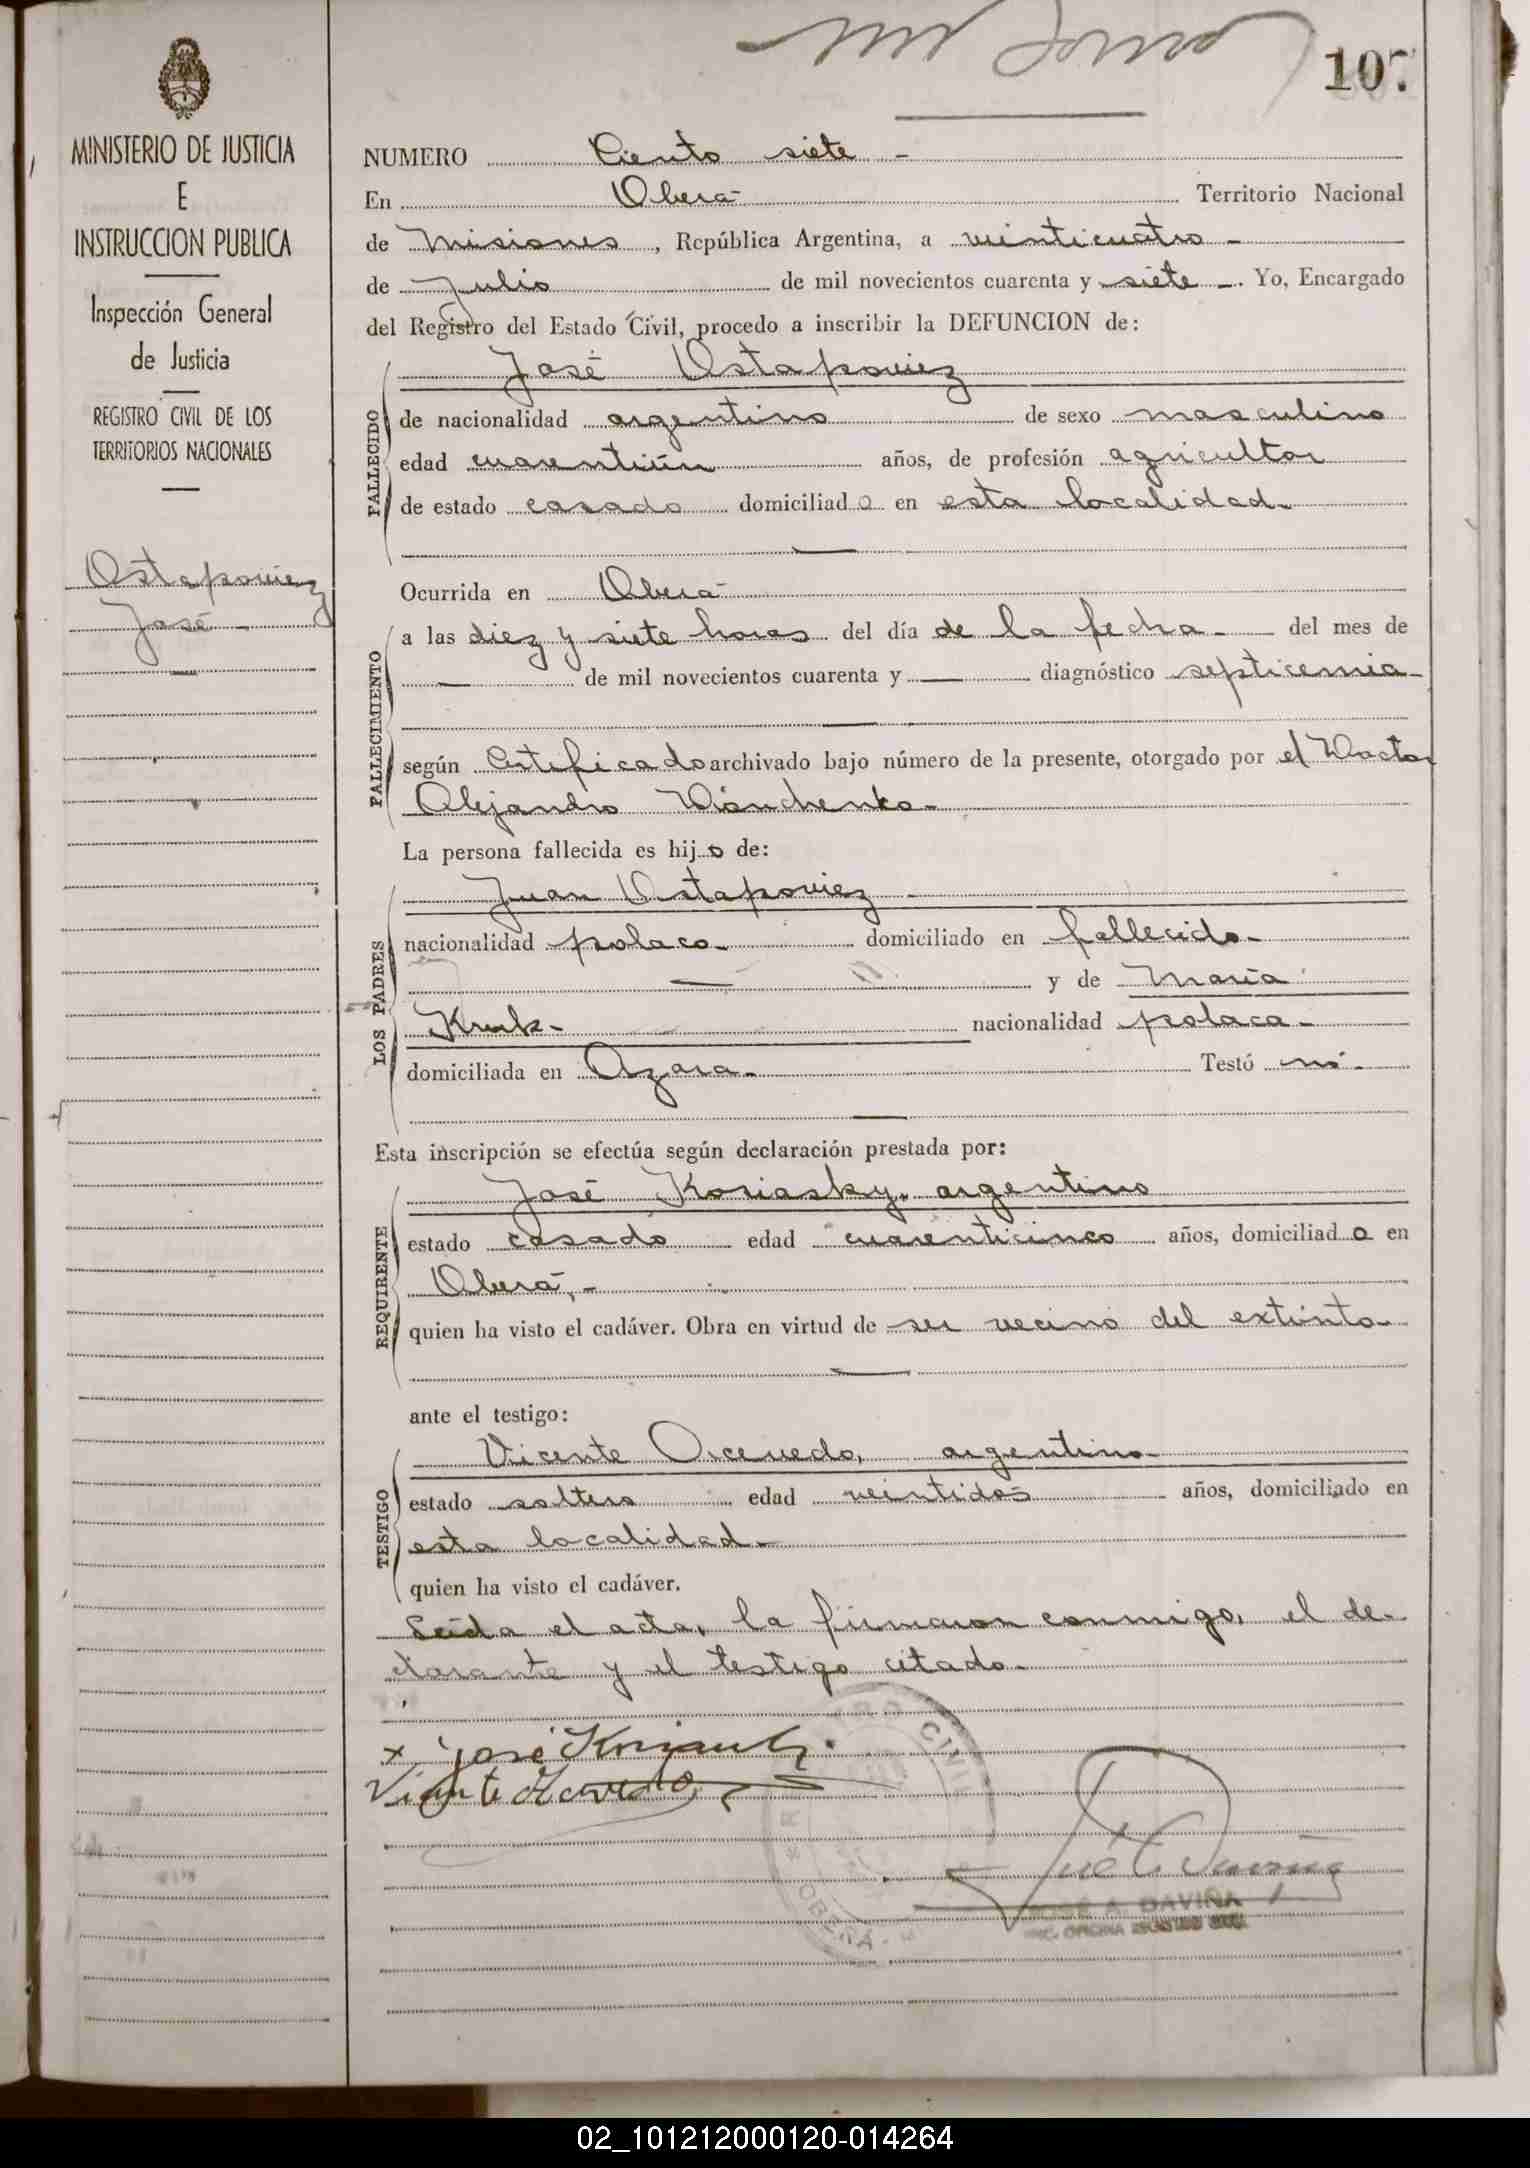 107
MINISTERIO DE JUSTICIA
E
INSTRUCCION PUBLICA
Inspección General
de Justicia
REGISTRO CIVIL DE LOS
TERRITORIOS NACIONALES
Ostapowiez
José -
NUMERO Ciento siete -
En Oberá Territorio Nacional
de Misiones, República Argentina, a veinticuatro -
de Julio de mil novecientos cuarenta y siete -. Yo, Encargado
del Registro del Estado Civil, procedo a inscribir la DEFUNCION de:
José Ostapowiez
FALLECIDO
de nacionalidad argentino de sexo masculino
edad cuarentiún años, de profesión agricultor
de estado casado domiciliado en esta localidad.
Ocurrida en Oberá
FALLECIMIENTO
a las diez y siete horas del día de la fecha - del mes de
— de mil novecientos cuarenta y — diagnóstico septicemia -
según Certificado archivado bajo número de la presente, otorgado por el Doctor
Alejandro
La persona fallecida es hijo de:
LOS PADRES
Juan Ostapowiez -
nacionalidad polaco - domiciliado en fallecido -
— y de María
Kruk - nacionalidad polaca -
domiciliada en Azara - Testó nó -
Esta inscripción se efectúa según declaración prestada por:
REQUIRENTE
José Kosiasky, argentino
estado casado edad cuarenticinco años, domiciliado en
Oberá, -
quien ha visto el cadáver. Obra en virtud de ser vecino del extinto -
ante el testigo:
TESTIGO
Vicente Acevedo, argentino -
estado soltero edad veintidos años, domiciliado en
esta localidad -
quien ha visto el cadáver.
Leída el acta, la firmaron conmigo, el de-
clarante y el testigo citado -
x José
Vicente Acevedo
REGISTRO CIVIL
* OBERÁ -
JOSÉ A. DAVIÑA
ENC. OFICINA
02_101212000120-014264